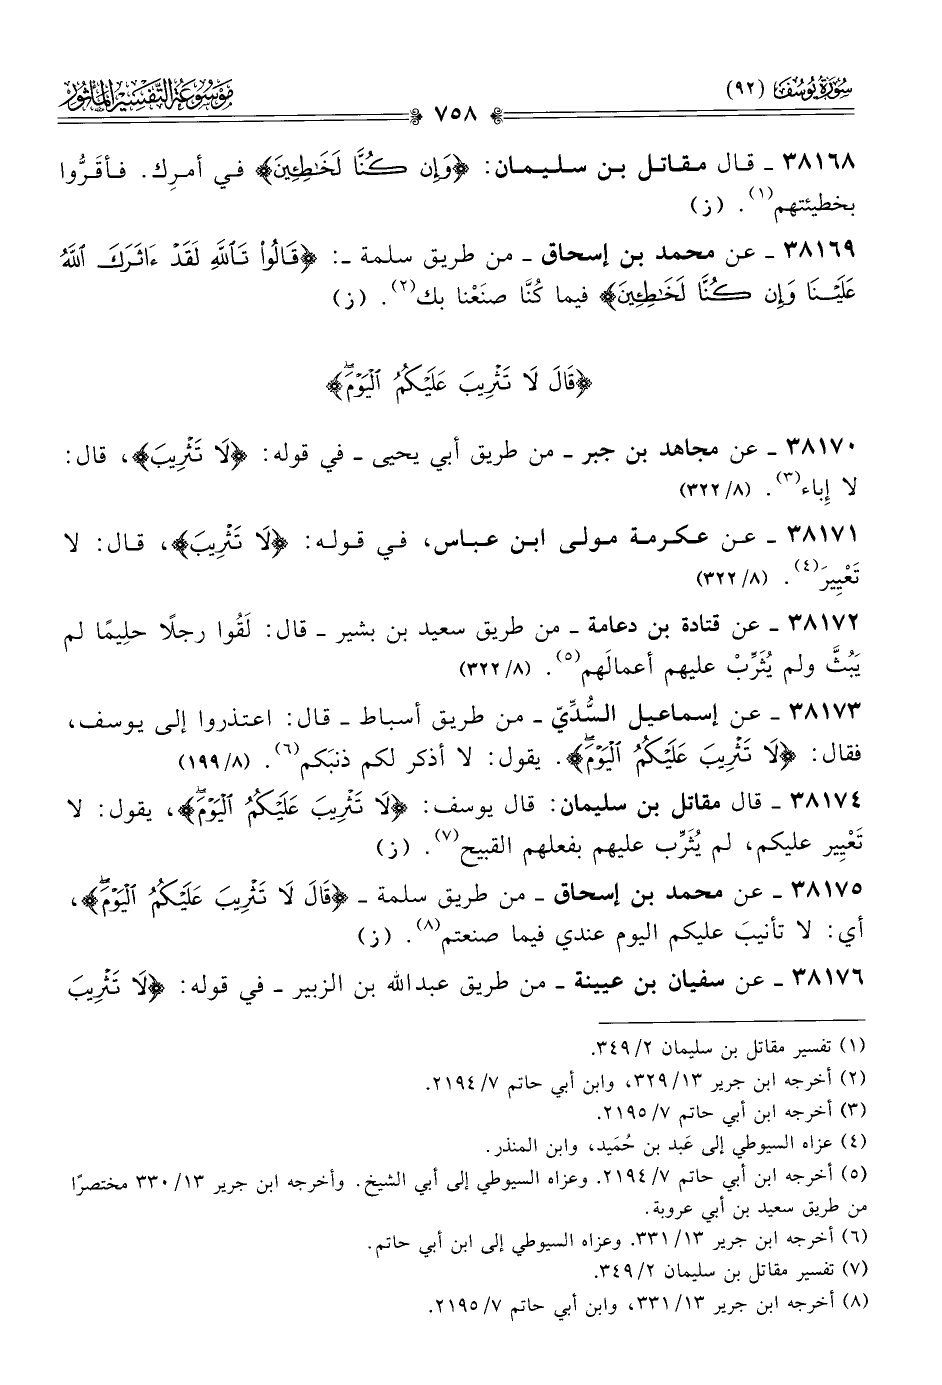 سُورَةُ يُوسُفَ (٩٢)
٧٥٨
مَوْسُوعَةُ التَّفْسِيرِ المَأْثُور
٣٨١٦٨ ـ قال مقاتل بن سليمان: ﴿وَإِن كُنَّا لَخَٰطِـِٔينَ﴾ في أمرِك. فأقَرُّوا
بخطيئتهم(١). (ز)
٣٨١٦٩ ـ عن محمد بن إسحاق ـ من طريق سلمة ـ: ﴿قَالُوا۟ تَٱللَّهِ لَقَدْ ءَاثَرَكَ ٱللَّهُ
عَلَيْنَا وَإِن كُنَّا لَخَٰطِـِٔينَ﴾ فيما كُنَّا صنَعْنا بك(٢). (ز)
﴿قَالَ لَا تَثْرِيبَ عَلَيْكُمُ ٱلْيَوْمَۖ﴾
٣٨١٧٠ ـ عن مجاهد بن جبر ـ من طريق أبي يحيى ـ في قوله: ﴿لَا تَثْرِيبَ﴾، قال:
لا إِباء(٣). (٨/ ٣٢٢)
٣٨١٧١ ـ عن عكرمة مولى ابن عباس، في قوله: ﴿لَا تَثْرِيبَ﴾، قال: لا
تَعْيِيرَ(٤). (٨/ ٣٢٢)
٣٨١٧٢ ـ عن قتادة بن دعامة ـ من طريق سعيد بن بشير ـ قال: لَقُوا رجلًا حلِيمًا لم
يَبُثَّ ولم يُثَرِّبْ عليهم أعمالَهم(٥). (٨/ ٣٢٢)
٣٨١٧٣ ـ عن إسماعيل السُّدِّيّ ـ من طريق أسباط ـ قال: اعتذروا إلى يوسف،
فقال: ﴿لَا تَثْرِيبَ عَلَيْكُمُ ٱلْيَوْمَۖ﴾. يقول: لا أذكر لكم ذنبَكم(٦). (٨/ ١٩٩)
٣٨١٧٤ ـ قال مقاتل بن سليمان: قال يوسف: ﴿لَا تَثْرِيبَ عَلَيْكُمُ ٱلْيَوْمَۖ﴾، يقول: لا
تَعْيِير عليكم، لم يُثَرِّب عليهم بفعلهم القبيح(٧). (ز)
٣٨١٧٥ ـ عن محمد بن إسحاق ـ من طريق سلمة ـ ﴿قَالَ لَا تَثْرِيبَ عَلَيْكُمُ ٱلْيَوْمَۖ﴾،
أي: لا تأنيبَ عليكم اليوم عندي فيما صنعتم(٨). (ز)
٣٨١٧٦ ـ عن سفيان بن عيينة ـ من طريق عبدالله بن الزبير ـ في قوله: ﴿لَا تَثْرِيبَ
(١) تفسير مقاتل بن سليمان ٢/ ٣٤٩.
(٢) أخرجه ابن جرير ١٣/ ٣٢٩، وابن أبي حاتم ٧/ ٢١٩٤.
(٣) أخرجه ابن أبي حاتم ٧/ ٢١٩٥.
(٤) عزاه السيوطي إلى عَبد بن حُمَيد، وابن المنذر.
(٥) أخرجه ابن أبي حاتم ٧/ ٢١٩٤. وعزاه السيوطي إلى أبي الشيخ. وأخرجه ابن جرير ١٣/ ٣٣٠ مختصرًا
من طريق سعيد بن أبي عروبة.
(٦) أخرجه ابن جرير ١٣/ ٣٣١. وعزاه السيوطي إلى ابن أبي حاتم.
(٧) تفسير مقاتل بن سليمان ٢/ ٣٤٩.
(٨) أخرجه ابن جرير ١٣/ ٣٣١، وابن أبي حاتم ٧/ ٢١٩٥.